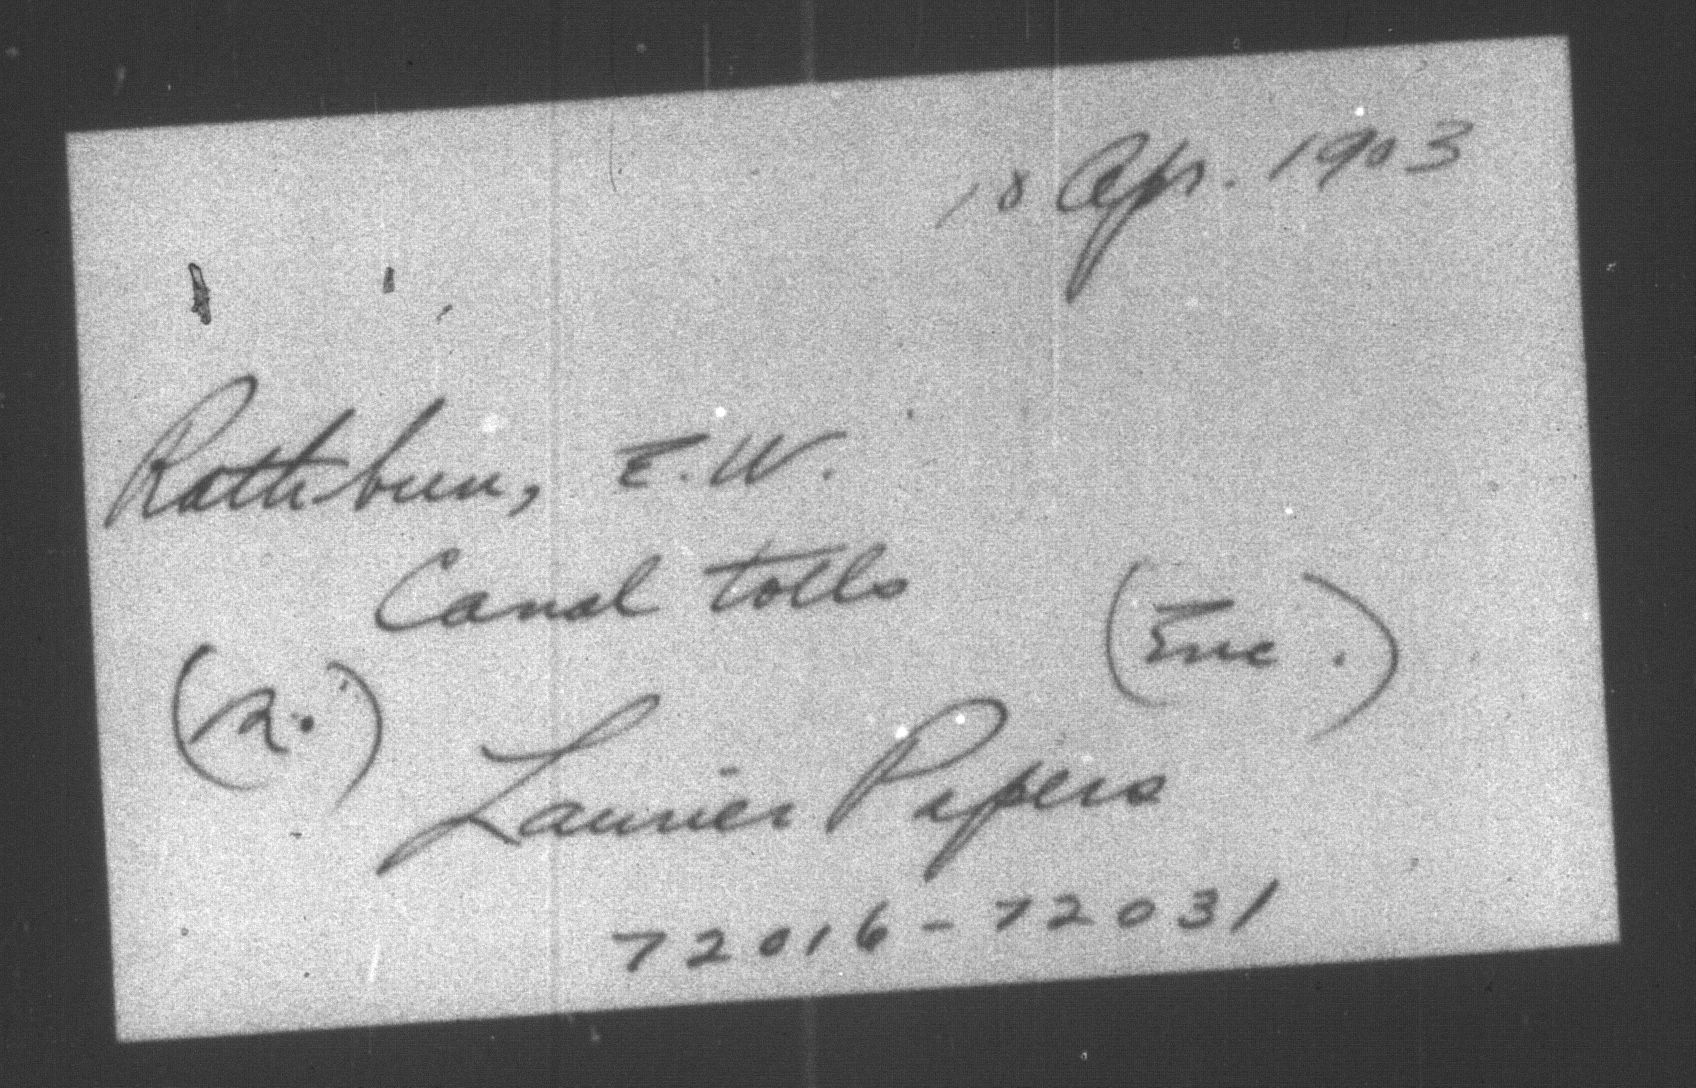 18 Apr. 1903
Rathbun, E.W.
Canal tolls
(Enc.)
(R.)
Laurier Papers
72016-72031